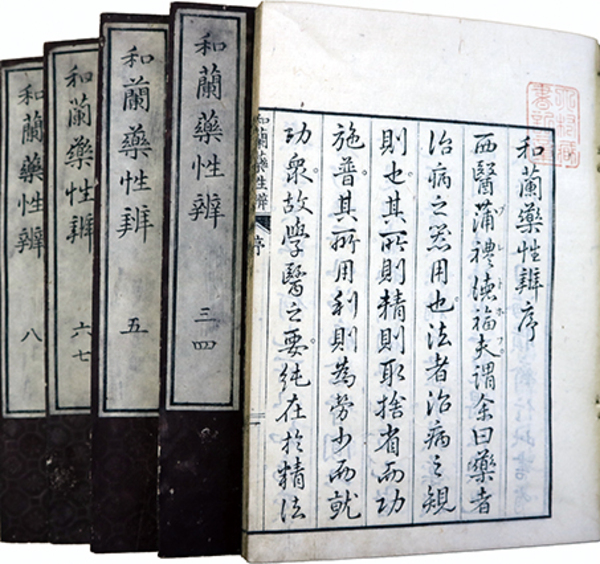 和蘭藥性辨序
西醫蒲禮瀆福夫謂余曰藥者
治病之器用也。法者治病之規
則也。其所則精則取捨省而功
施普。其所用利則為勞少而就
功衆。故學醫之要。純在於精法
和蘭藥性辨 序
和蘭藥性辨 三四
和蘭藥性辨 五
和蘭藥性辨 六七
和蘭藥性辨 八